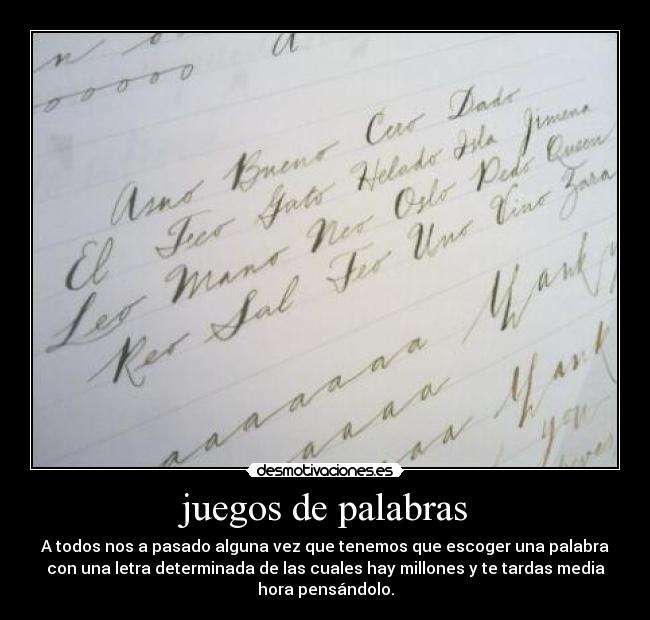 n o
ooooo a
Asno Bueno Cero Dado
El Feo Gato Helado Isla Jimena
Leo Mano Neo Oslo Pedo Queen
Reo Sal Teo Uno Vino Zara
aaaaaaa Yank y
aaaa Yank
aa you
desmotivaciones.es
juegos de palabras
A todos nos a pasado alguna vez que tenemos que escoger una palabra
con una letra determinada de las cuales hay millones y te tardas media
hora pensándolo.